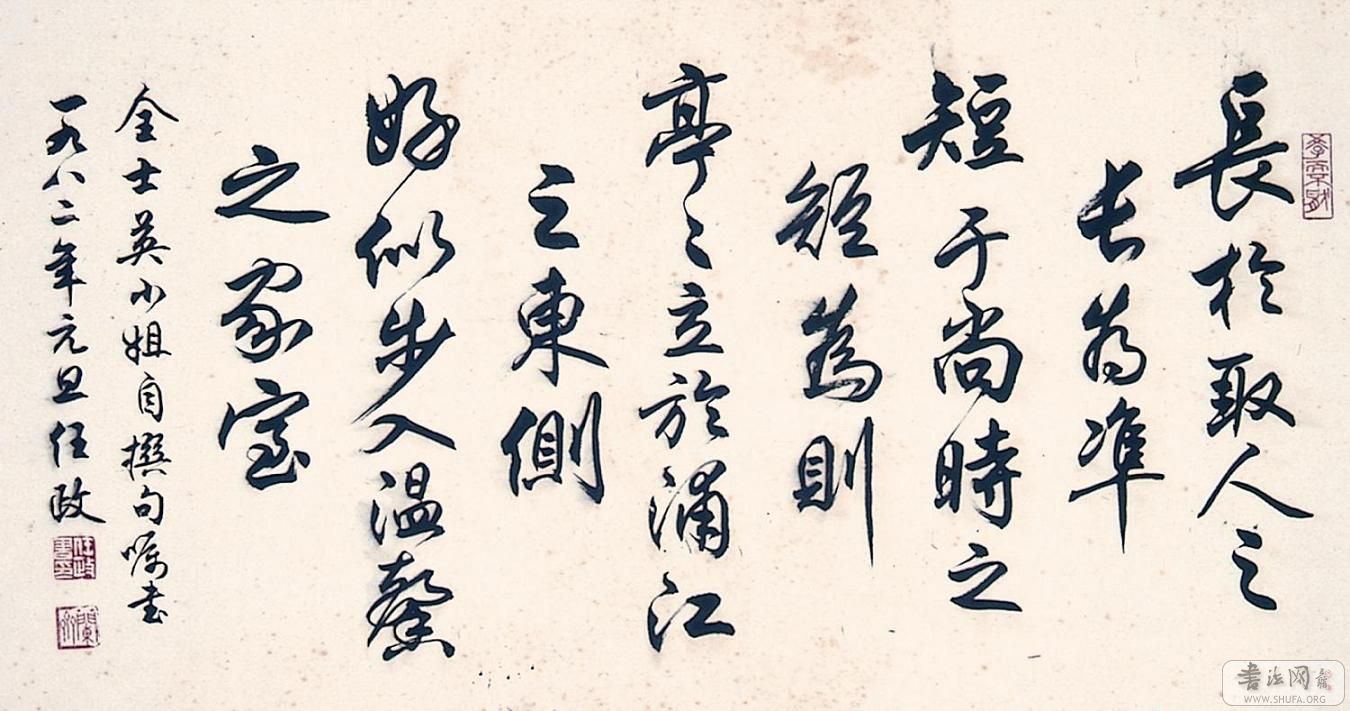 長於取人之
长為準
短于尚時之
短為則
亭々立於浦江
之東側
好似步入温馨
之家室
全士英小姐自撰句嘱书
一九八二年元旦任政
任政書印
書法网
WWW.SHUFA.ORG